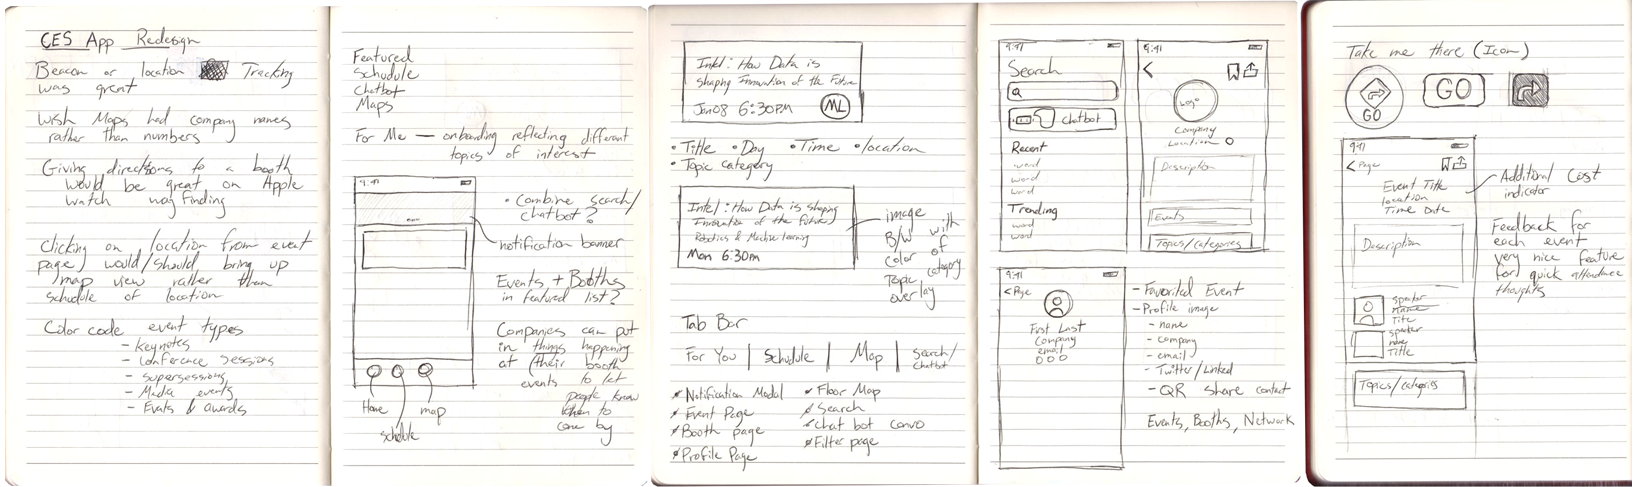 CES App Redesign
Beacon or location Tracking
was great
Wish Maps had company names
rather than numbers
Giving directions to a booth
would be great on Apple
Watch wayfinding
Clicking on location from event
page) would/should bring up
map view rather than
schedule of location
Color code event types
- Keynotes
- Conference Sessions
- Supersessions
- Media events
- Events & awards
Featured
Schudule
Chatbot
Maps
For Me — onboarding reflecting different
topics of interest
9:41
• Combine search/
chatbot?
notification banner
Events + Booths
in featured list?
Companies can put
in things happening
at (their booth
events to let
people know
when to
come by
Home
schedule
map
Intel: How Data is
shaping Innovation of the Future
Jan 08 6:30PM
ML
• Title • Day • Time • location
• Topic category
Intel: How Data is shaping
Innovation of the Future
Robotics & Machine Learning
Mon 6:30pm
image
B/W with
color of
Topic category
overlay
Tab Bar
For You | Schedule | Map | Search/
Chatbot
Notification Modal
Event Page
Booth page
Profile Page
Floor Map
Search
Chat bot convo
Filter page
9:41
Search
Chatbot
Recent
word
word
word
Trending
word
word
9:41
<
Logo
Company
Location
Description
Events
Topics/categories
9:41
< Page
First Last
Company
email
- Favorited Event
- Profile image
- name
- company
- email
- Twitter/Linked
- QR share contact
Events, Booths, Network
Take me there (Icon)
GO
GO
9:41
< Page
Event Title
location
Time Date
Description
speaker
Name
Title
speaker
name
Title
Topics/categories
Additional Cost
indicator
Feedback for
each event
very nice feature
for quick attendance
thoughts